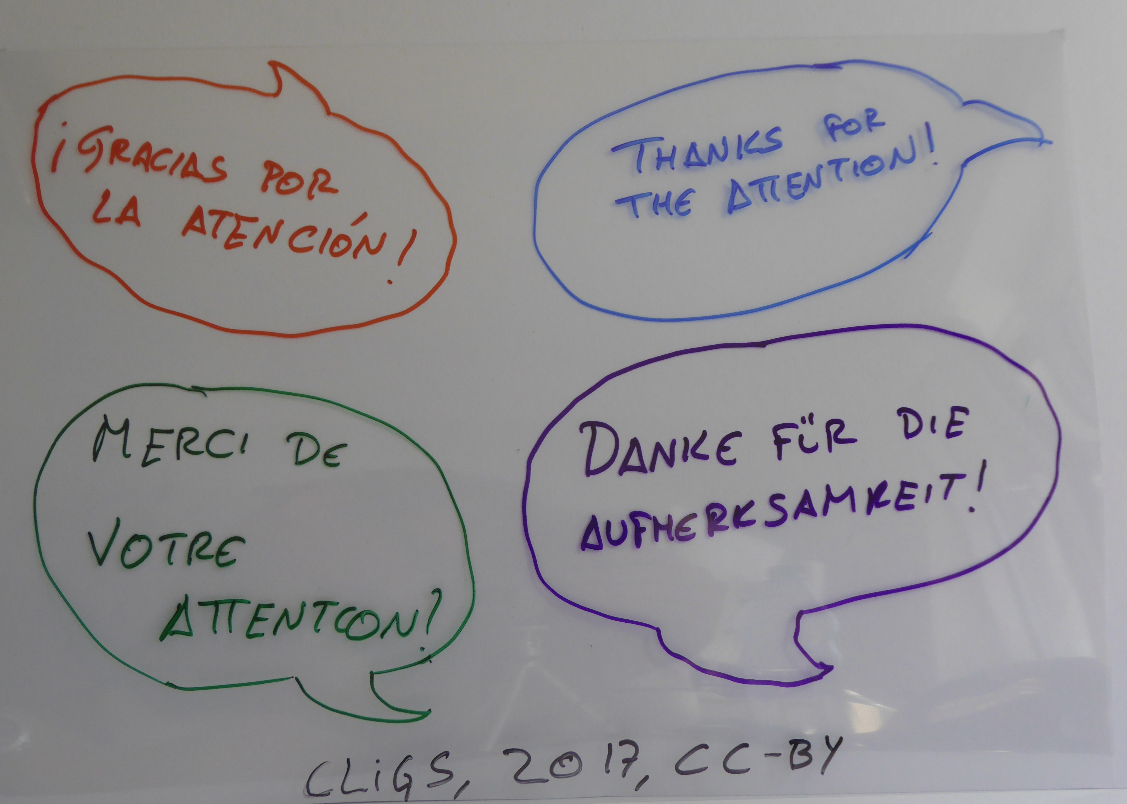 ¡GRACIAS POR
LA ATENCIÓN!
THANKS FOR
THE ATTENTION!
MERCI DE
VOTRE
ATTENTION!
DANKE FÜR DIE
AUFMERKSAMKEIT!
CLiGS, 2017, CC-BY